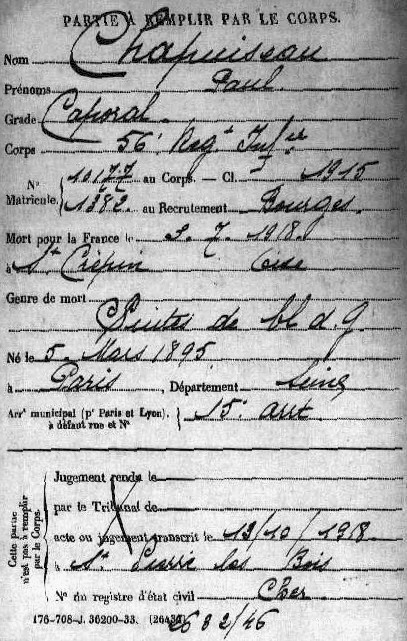 PARTIE À REMPLIR PAR LE CORPS.
Nom Chapuiseau
Prénoms Paul
Grade Caporal.
Corps 56e Regt Infrie
N° Matricule. 10177 au Corps. — Cl. 1915
1382 au Recrutement Bourges
Mort pour la France le 3. 7. 1918
à St Crépin Oise
Genre de mort
Suites de bl d g
Né le 5. Mars 1895
à Paris, Département Seine
Arrt municipal (pr Paris et Lyon), à défaut rue et N° 15e arrt
Cette partie n'est pas à remplir par le Corps.
Jugement rendu le
par le Tribunal de
acte ou jugement transcrit le 13/10/1918
à St Pierre les Bois
Cher
N° du registre d'état civil
176-708-J. 36200-33.